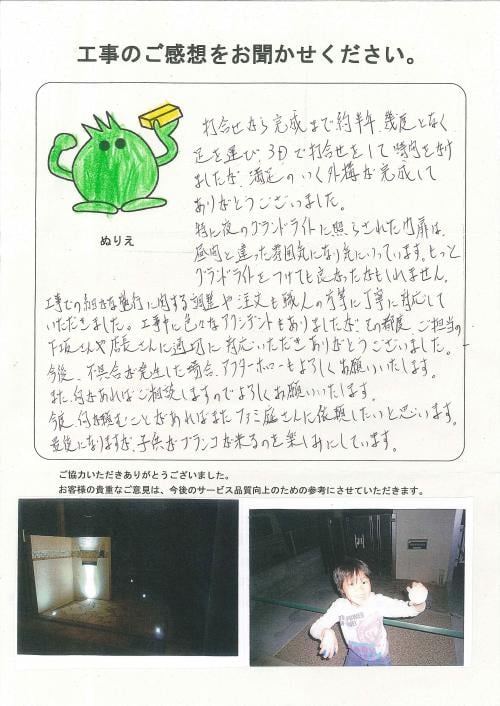 工事のご感想をお聞かせください。
打合せから完成まで約半年、幾度となく
足を運び、3Dで打合せをして時間をかけ
ましたが、満足のいく外構が完成して
ありがとうございました。
特に夜のグランドライトに照らされた門扉は、
昼間と違った雰囲気になり気にいっています。もっと
グランドライトをつけても良かったかもしれません。
ぬりえ
工事での細かな施行に関する調整や注文も職人の方等に丁寧に対応して
いただきました。工事中に色々なアクシデントもありましたが、その都度、ご担当の
下坂さんや店長さんに適切に対応いただきありがとうございました。
今後、不具合が発生した場合、アフターホローもよろしくお願いいたします。
また、何かあればご相談しますのでよろしくお願いいたします。
今度、何か頼むことがあればまたファミ庭さんに依頼したいと思います。
最後になりますが、子供がブランコが来るのを楽しみにしています。
ご協力いただきありがとうございました。
お客様の貴重なご意見は、今後のサービス品質向上のための参考にさせていただきます。